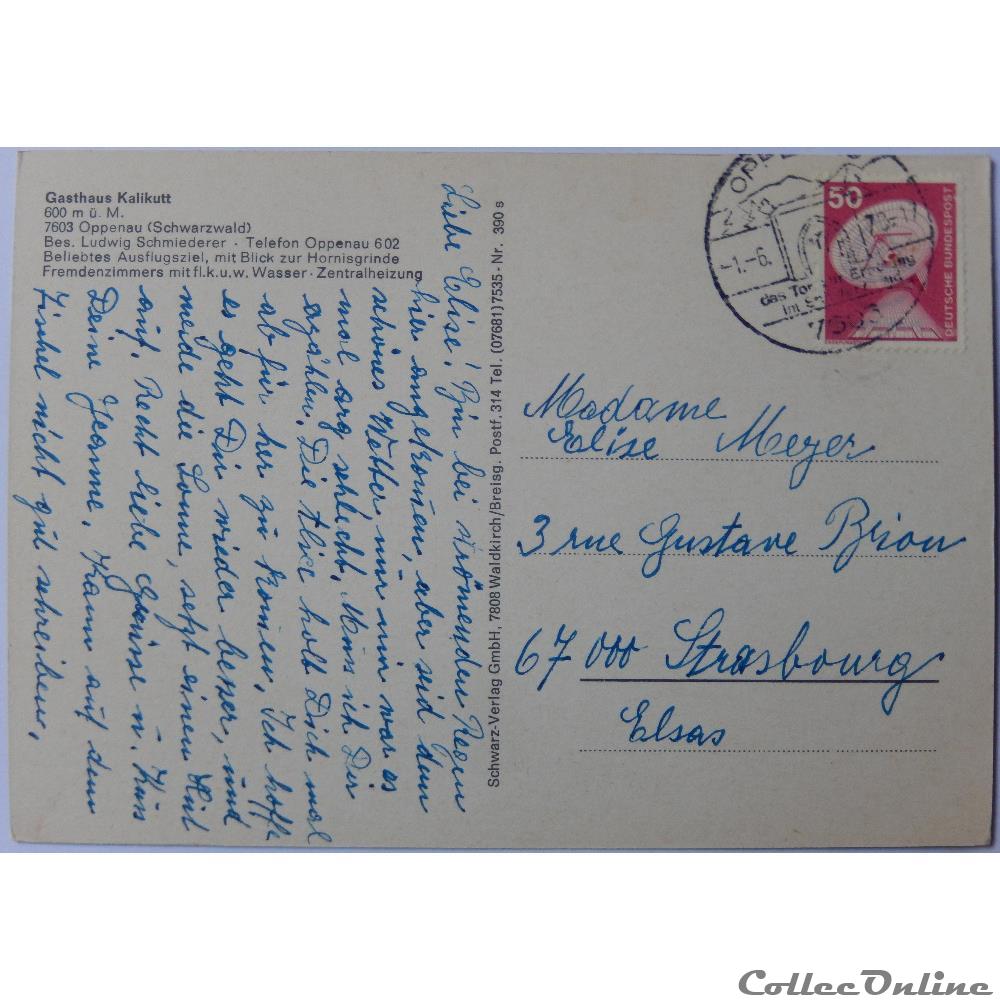 Gasthaus Kalikutt
600 m ü. M.
7603 Oppenau (Schwarzwald)
Bes. Ludwig Schmiederer · Telefon Oppenau 602
Beliebtes Ausflugsziel, mit Blick zur Hornisgrinde
Fremdenzimmers mit fl. k. u. w. Wasser · Zentralheizung
Liebe Elise! Bin bei strömenden Regen
hier angekomen, aber seid dem
schönes Wetter, nur mir war es
mal arg schlecht. Muss ich Dir
erzählen. Die Alice holt Dich mal
ab für her zu komen. Ich hoffe
es geht Dir wieder besser, und
meide die Sonne, setzt einen Hut
auf. Recht liebe Grüsse u. Kuss
Deine Jeanne. Kann auf dem
nicht gut schreiben.
Schwarz-Verlag GmbH, 7808 Waldkirch/Breisg. Postf. 314 Tel. (07681) 7535 - Nr. 390 s
50
DEUTSCHE BUNDESPOST
-1.-6.
das Tor
Madame
Elise Meyer
3 rue Gustave Brion
67000 Strasbourg
Elsas
CollecOnline